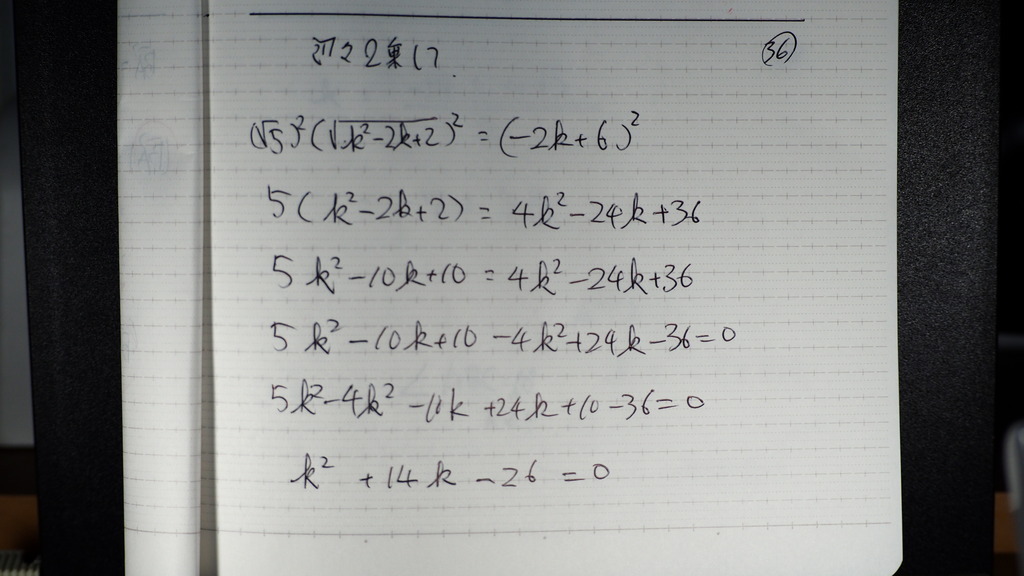 辺々2乗して ㊱
(√5)²(√k²-2k+2)² = (-2k+6)²
5(k²-2k+2) = 4k²-24k+36
5k²-10k+10 = 4k²-24k+36
5k²-10k+10-4k²+24k-36=0
5k²-4k²-10k+24k+10-36=0
k²+14k-26=0